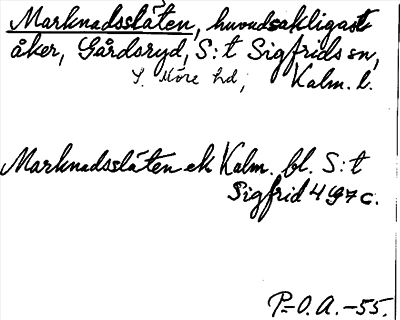 Marknadsslåten, huvudsakligast
åker, Gårdsryd, S:t Sigfrids sn,
S. Möre hd, Kalm. l.
Marknadsslåten ek Kalm. bl. S:t
Sigfrid 4 9 7 c.
P.-O. A. -55.